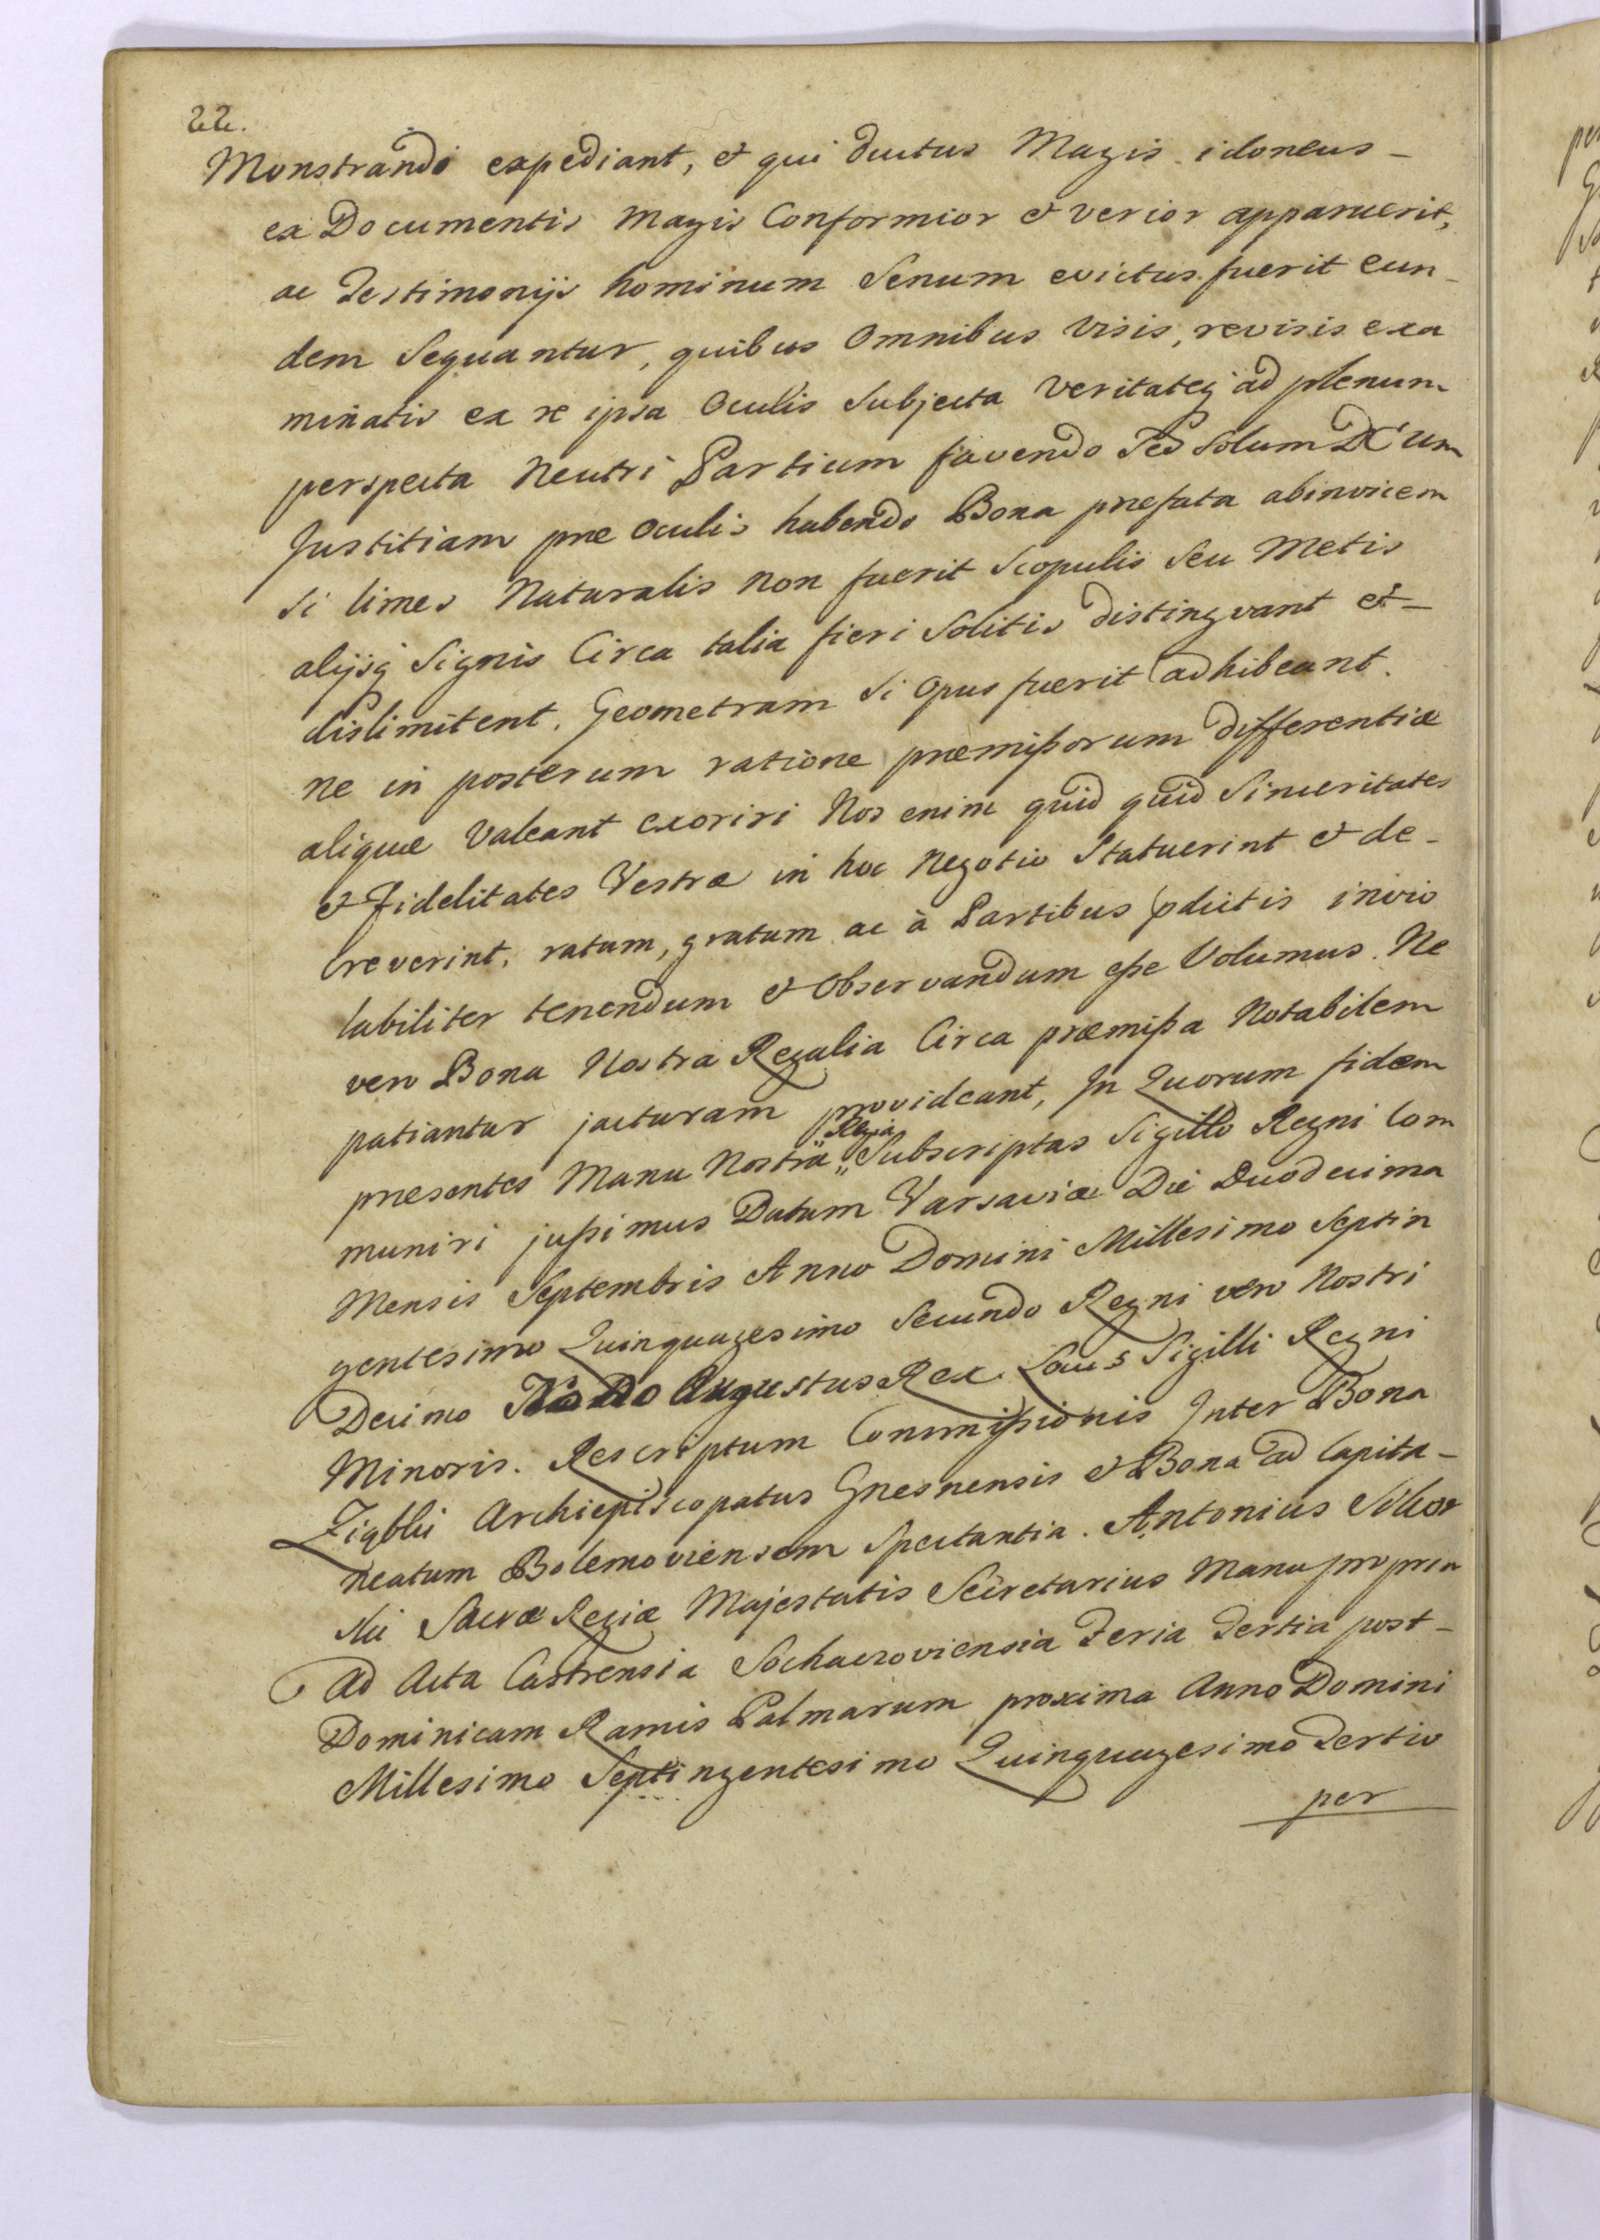 22.
Monstrandi expediant, et qui ductus Magis idoneus-
ex Documentis magis Conformior et verior apparuerit,
ac Testimonijs hominum Senum evictus fuerit eun-
dem Sequantur, quibus Omnibus Visis, revisis exa
minatis ex re ipsa Oculis Subjecta Veritateq ad plenum
perspecta Neutri Partium favendo Sed Solum DEum
Justitiam præ oculis habendo Bona præfata abinvicem
si limes Naturalis non fuerit Scopulis Seu Metis
alijsq Signis Circa talia fieri Solitis distingvant et-
dislimitent. Geometram Si Opus fuerit adhibeant.
ne in posterum ratione præmißorum differentiæ
aliquæ Valeant exoriri Nos enim quid quid Sinceritates
et Fidelitates Vestræ in hoc Negotio Statuerint et de-
creverint, ratum, gratum ac à Partibus pdictis invio
labiliter tenendum et Observandum eße Volumus. Ne
vero Bona Nostra Regalia Circa præmißa Notabilem
patiantur jacturam provideant, In Quorum fidem
præsentes Manu Nostrâ Regia Subscriptas Sigillo Regni Com
muniri jußimus Datum Varsaviæ Die Duodecima
Mensis Septembris Anno Domini Millesimo Septin
gentesimo Quinquagesimo Secundo Regni vero Nostri
Decimo Augustus Rex. Locus Sigilli Regni
Minoris. Rescriptum Commißionis Inter Bona
Archiepiscopatus Gnesnensis et Bona ad Capita-
neatum Bolemoviensem Spectantia. Antonius Sikor
ski Sacræ Regiæ Majestatis Secretarius Manu propria
Ad Acta Castrensia Sochaczoviensia Feria Tertia post-
Dominicam Ramis Palmarum proxima Anno Domini
Millesimo Septingentesimo Quinquagesimo Tertio
per